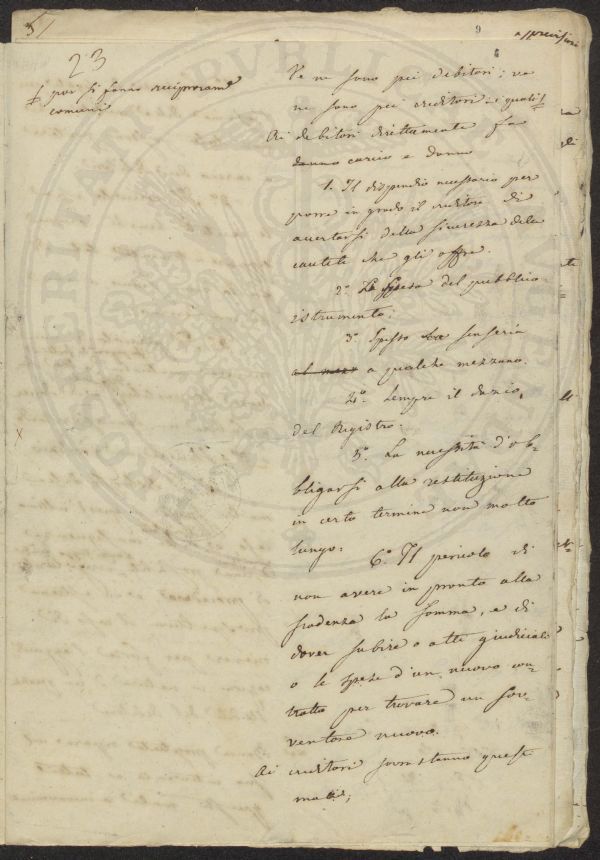 23
poi si fanno reciprocamᵉ
comuni
9
Ve ne sono pei debitori; ve
ne sono pei creditori; i quali
Ai debitori direttamente fa
danno carico e danno
1. Il dispendio necessario per
porre in grado il creditore di
accertarsi della sicurezza delle
cautele che gli offre.
2.º La Spesa del pubblico
istrumento;
3º Spesso la senseria
a qualche mezzano.
4.º Sempre il dazio,
del Registro.
5.º La necessità d'ob-
bligarsi alla restituzione
in certo termine non molto
lungo.
6.º Il pericolo di
non avere in pronto alla
scadenza la somma, e di
dover subire o atti giudiciali
o le spese d'un nuovo con-
tratto per trovare un sov-
ventore nuovo.
Ai creditori sovrastanno questi
mali;